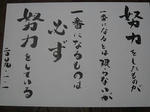 努力をしたものが
一番になるとは限らないが
一番になるものは
必ず
努力をしている